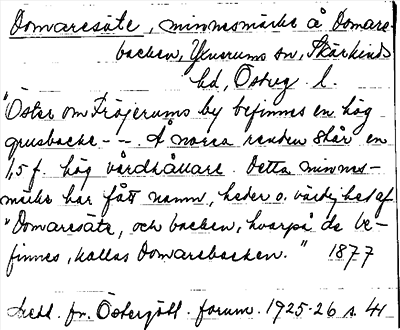 Domaresäte, minnesmärke å Domare-
backen, Yllerums sn, Skärkinds
hd, Österg. l.
"Öster om Fröjerums by befinnes en hög
grusbacke -- - Å norra randen står en
1,5 f. hög vårdhållare. Detta minnes-
märke har fått namn, heder o. värdighet af
"Domaresäte, och backen, hvarpå de be-
finnes, kallas Domarebacken." 1877
Medd. fr. Östergötl. fornm. 1925-26 s. 41